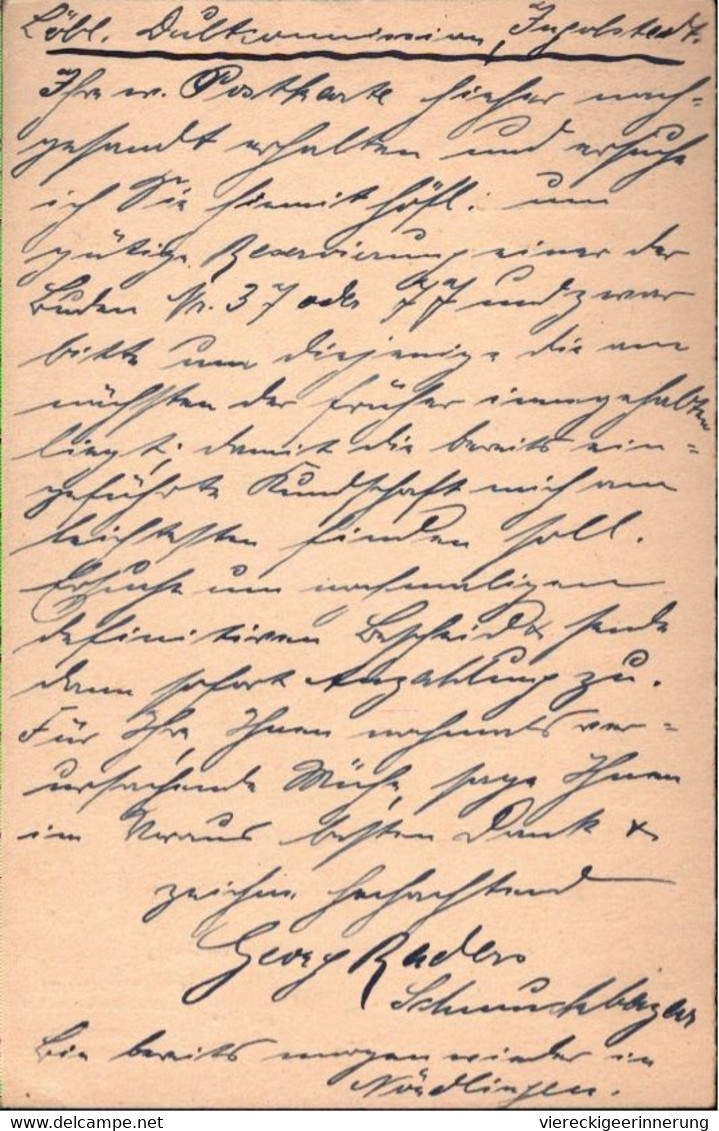 Löbl. Dultkommission, Ingolstadt.
Ihre w. Postkarte hieher nach=
gesandt erhalten und ersuche
ich Sie hiemit höfl. um
gütige Reservierung einer der
Buden Nr. 37 oder 77 und zwar
bitte um diejenige die am
nächsten der früher innegehabten
liegt; damit die bereits ein=
geführte Kundschaft mich am
leichtesten finden soll.
Ersuche um nochmaligen
definitiven Bescheid & sende
dann sofort Anzahlung zu.
Für Ihre, Ihnen nochmals ver=
ursachende Mühe, sage Ihnen
im Voraus besten Dank &
zeichne hochachtend
Georg Raders
Schmuckbazar
Bin bereits morgen wieder in
Nördlingen.
delcampe.net
viereckigeerinnerung